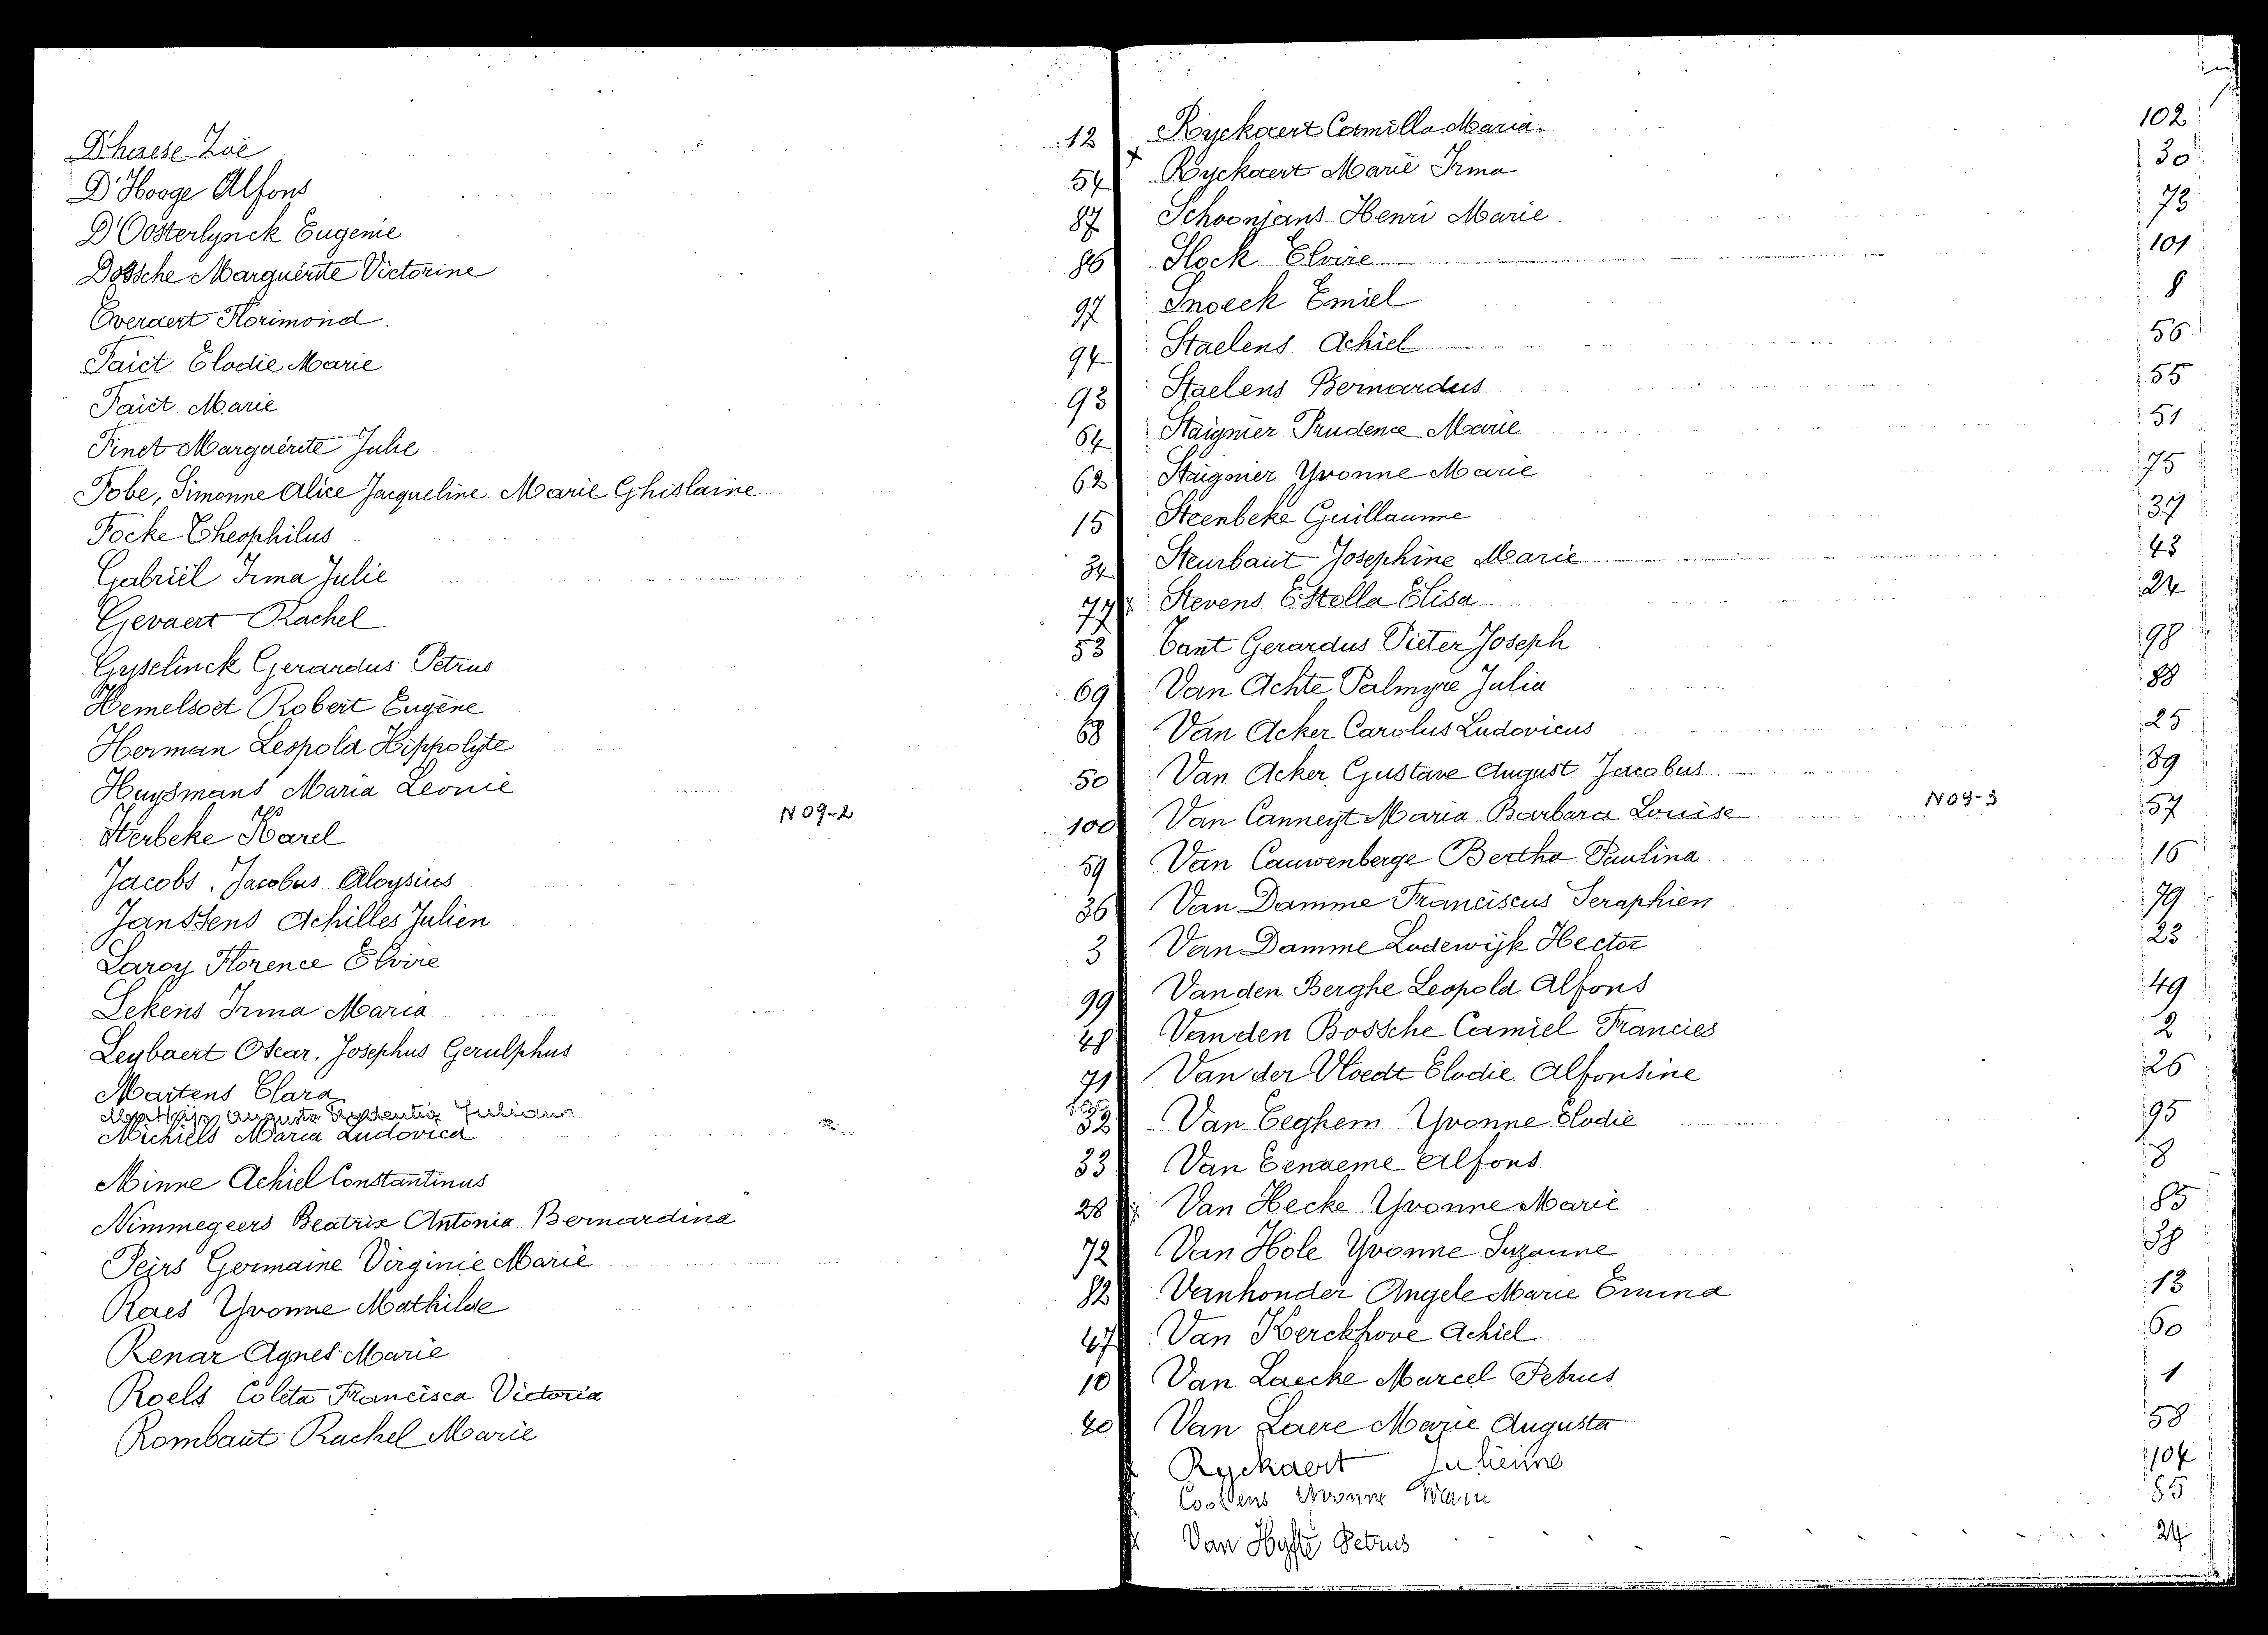 D'haese Zoë 12
D'Hooge Alfons 54
D'Oosterlynck Eugenie 87
Dossche Marguérite Victorine 86
Everaert Florimond. 97
Faict Elodie Marie 94
Faict Marie 93
Finet Marguérite Julie 64
Fobe, Simonne Alice Jacqueline Marie Ghislaine 62
Focke Theophilus 15
Gabriël Irma Julie 34
Gevaert Rachel 77
Gysselinck Gerardus Petrus 53
Hemelsoet Robert Eugène 69
Herman Leopold Hippolyte 68
Huysmans Maria Leonie 50
N 09-2
Iterbeke Karel 100
Jacobs, Jacobus Aloysius 59
Janssens Achilles Julien 36
Laroy Florence Elvire 3
Lekens Irma Maria 99
Leybaert Oscar, Josephus Gerulphus 48
Martens Clara 71
Augusta Juliana
Michiels Maria Ludovica 32
Minne Achiel Constantinus 33
Nimmegeers Beatrix Antonia Bernardina 28
Peirs Germaine Virginie Marie 72
Raes Yvonne Mathilde 82
Renar Agnes Marie 47
Roels Coleta Francisca Victoria 10
Rombaut Rachel Marie 40
Ryckaert Camilla Maria 102
Ryckaert Marie Irma 30
Schoonjans Henri Marie 73
Slock Elvire 101
Snoeck Emiel 8
Staelens Achiel 56
Staelens Bernardus 55
Staignier Prudence Marie 51
Staignier Yvonne Marie 75
Steenbeke Guillaume 37
Steurbaut Josephine Marie 43
Stevens Estella Elisa 24
Tant Gerardus Pieter Joseph 98
Van Achte Palmyre Julia 88
Van Acker Carolus Ludovicus 25
Van Acker Gustave August Jacobus 89
N 09-3
Van Canneyt Maria Barbara Louise 57
Van Cauwenberge Bertha Paulina 16
Van Damme Franciscus Seraphien 79
Van Damme Lodewijk Hector 23
Van den Berghe Leopold Alfons 49
Van den Bossche Camiel Francies 2
Van der Vloedt Elodie Alfonsine 26
Van Eeghem Yvonne Elodie 95
Van Eenaeme Alfons 8
Van Hecke Yvonne Marie 85
Van Hole Yvonne Suzanne 38
Vanhonder Angele Marie Emma 13
Van Kerckhove Achiel 60
Van Laecke Marcel Petrus 1
Van Laere Marie Augusta 58
Ryckaert Julienne 104
Yvonne Marie 85
Van Hyfte Petrus 24